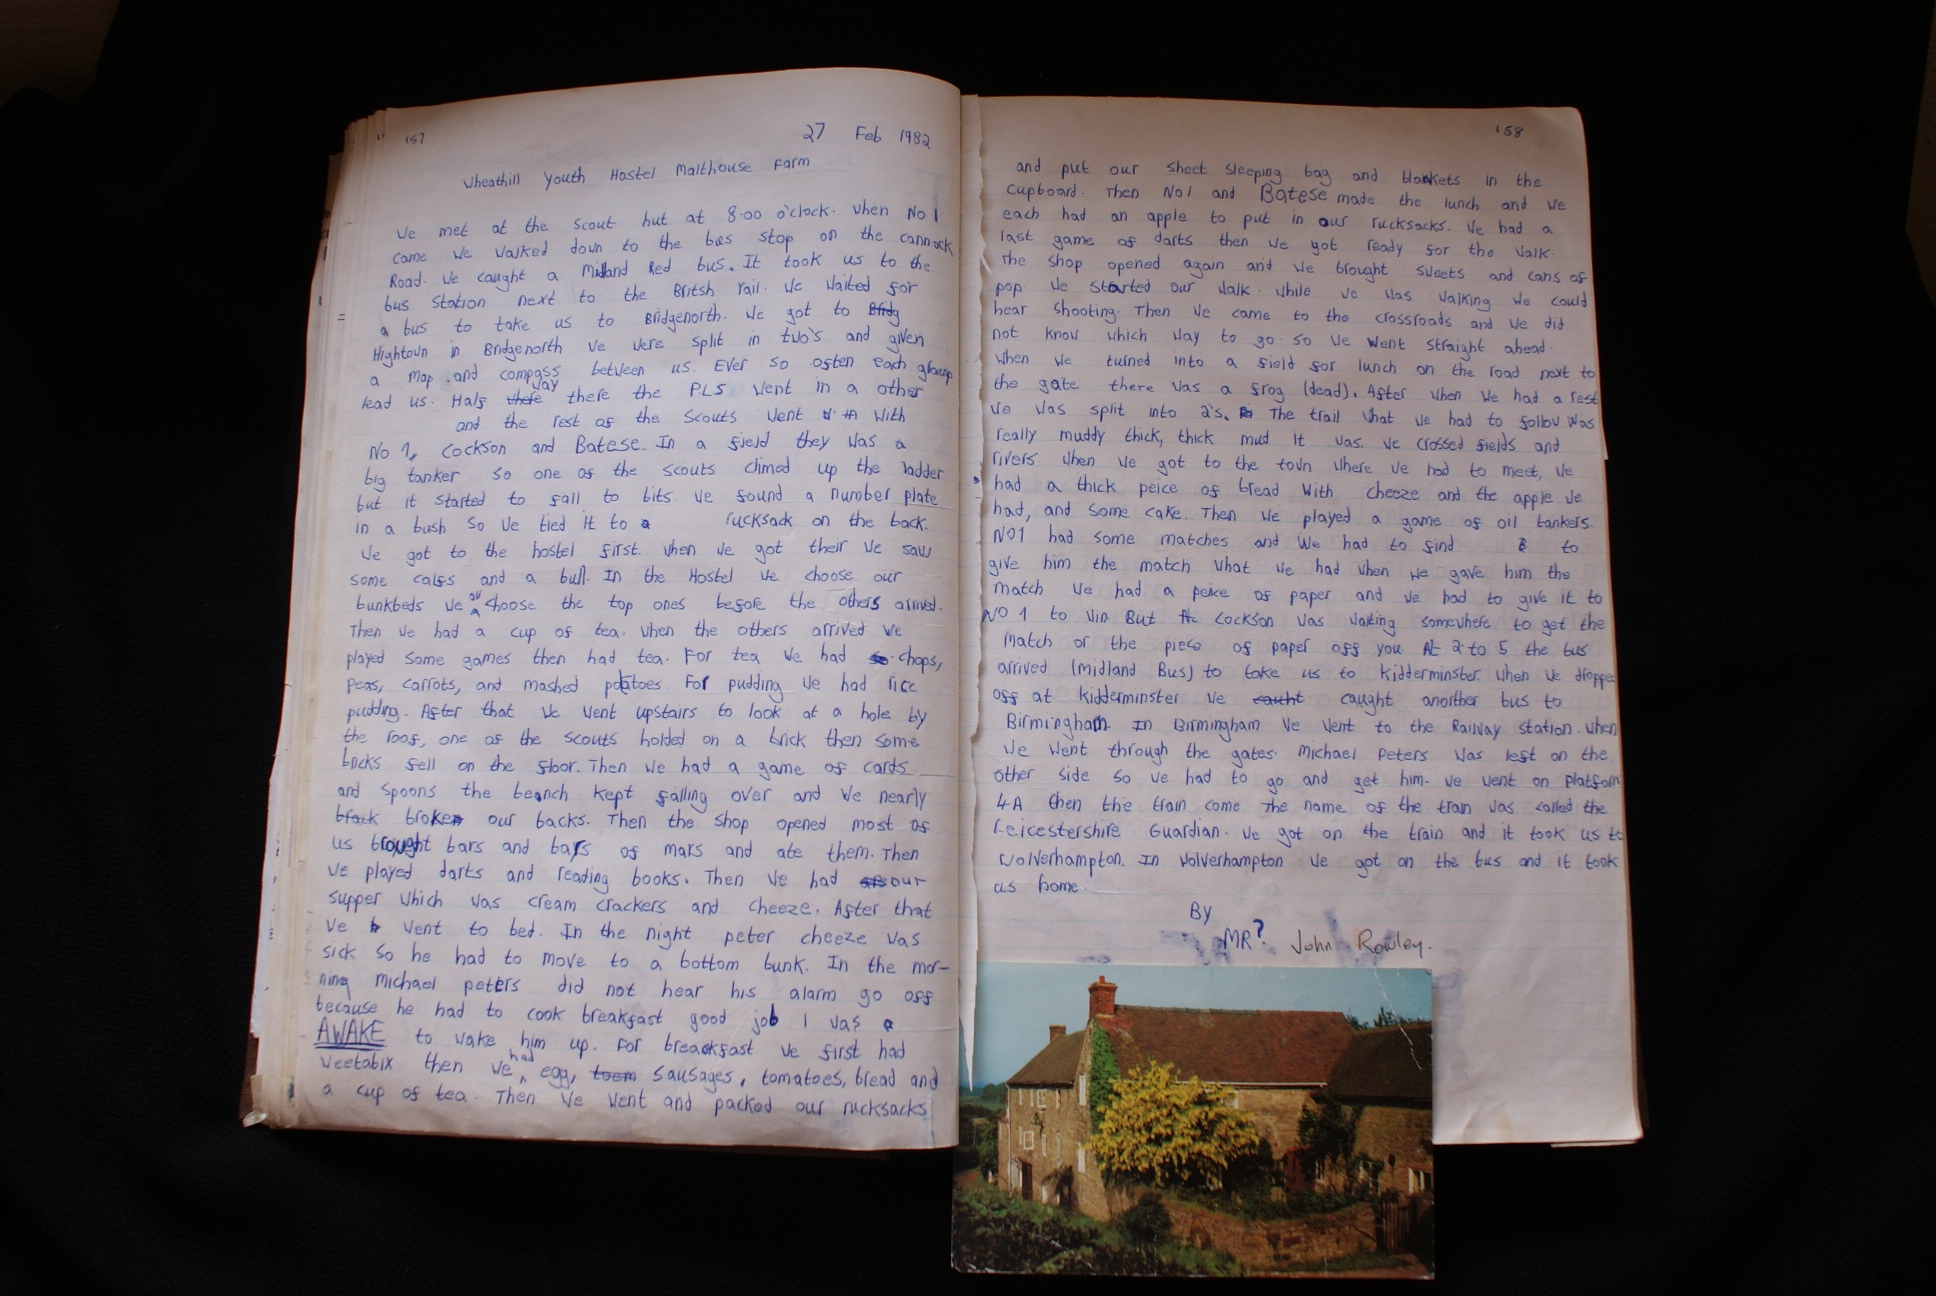 157
27 Feb 1982
Wheathill Youth Hostel Malthouse Farm
We met at the scout hut at 8.00 o'clock. When No 1
came we walked down to the bus stop on the cannock
Road. We caught a Midland Red bus. It took us to the
bus station next to the Britsh rail. We waited for
a bus to take us to Bridgenorth. We got to Bridg
Hightown in Bridgenorth we were split in two's and given
a map and compass between us. Ever so often each group
lead us. Half there way there the PLS went in a other
and the rest of the scouts went with
No 1, Cockson and Batese. In a field they was a
big tanker so one of the scouts climed up the ladder
but it started to fall to bits we found a number plate
in a bush so we tied it to a rucksack on the back.
We got to the hostel first. when we got their we saw
some calfs and a bull. In the Hostel we choose our
bunkbeds we all choose the top ones before the others arrived.
Then we had a cup of tea. when the others arrived we
played some games then had tea. For tea we had so chops,
peas, carrots, and mashed potatoes For pudding we had rice
pudding. After that we went upstairs to look at a hole by
the roof, one of the scouts holded on a brick then some
bricks fell on the floor. Then we had a game of cards
and spoons the beanch kept falling over and we nearly
brack broken our backs. Then the shop opened most of
us brought bars and bars of mars and ate them. Then
we played darts and reading books. Then we had our
supper which was cream crackers and cheeze. After that
we went to bed. In the night peter cheeze was
sick so he had to move to a bottom bunk. In the mor-
ning michael peters did not hear his alarm go off
because he had to cook breakfast good job I was a
AWAKE to wake him up. For breackfast we first had
weetabix then we had, egg, toem sausages, tomatoes, bread and
a cup of tea. Then we went and packed our rucksacks
158
and put our sheet sleeping bag and blankets in the
cupboard. Then No1 and Batese made the lunch and we
each had an apple to put in our rucksacks. We had a
last game of darts then we got ready for the walk.
The shop opened again and we brought sweets and cans of
pop. We started our walk. While we was walking we could
hear shooting. Then we came to the crossroads and we did
not know which way to go. So we went straight ahead.
When we turned into a field for lunch on the road next to
the gate there was a frog (dead). After when we had a rest
we was split into 2's. The trail what we had to follow was
really muddy thick, thick mud it was. We crossed fields and
rivers. When we got to the town where we had to meet, we
had a thick peice of bread with cheeze and the apple we
had, and some cake. Then we played a game of oil tankers.
NO1 had some matches and we had to find to
give him the match what we had when we gave him the
match we had a peice of paper and we had to give it to
NO 1 to win. But Cockson was waiting somewhere to get the
match or the piece of paper off you. At 2 to 5 the bus
arrived (midland Bus) to take us to kidderminster. when we dropped
off at kidderminster we cauht caught anorther bus to
Birmingham. In Birmingham we went to the Railway station. When
we went through the gates. Michael peters was left on the
other side so we had to go and get him. We went on platform
4A then the train come The name of the train was called the
Leicestershire Guardian. We got on the train and it took us to
Wolverhampton. In Wolverhampton we got on the bus and it took
us home.
By
MR? John Rowley.